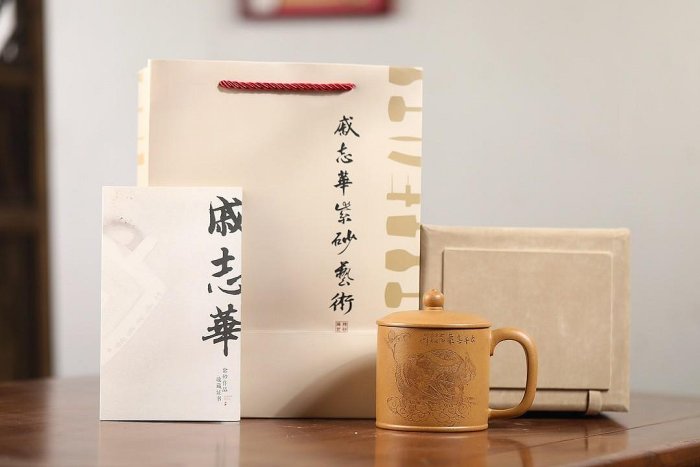 戚志華紫砂藝術
戚志華
紫砂作品
收藏证书